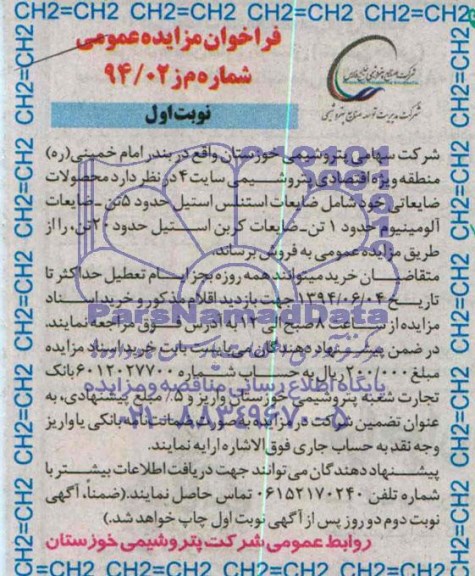 CH2=CH2 CH2=CH2 CH2=CH2 CH2=CH2 CH2=CH2
فراخوان مزایده عمومی
شماره م ز ۹۴/۰۲
نوبت اول
شرکت صنایع پتروشیمی خلیج فارس
شرکت مدیریت توسعه صنایع پتروشیمی
شرکت سهامی پتروشیمی خوزستان واقع در بندر امام خمینی (ره)
منطقه ویژه اقتصادی پتروشیمی سایت ۴ در نظر دارد محصولات
ضایعاتی خود شامل ضایعات استنلس استیل حدود ۵ تن - ضایعات
آلومینیوم حدود ۱ تن - ضایعات کربن استیل حدود ۲۰ تن، را از
طریق مزایده عمومی به فروش برساند.
متقاضیان خرید میتوانند همه روزه بجز ایام تعطیل حداکثر تا
تاریخ ۱۳۹۴/۰۶/۰۴ جهت بازدید اقلام مذکور و خرید اسناد
مزایده از ساعت ۸ صبح الی ۱۲ به آدرس فوق مراجعه نمایند.
در ضمن پیشنهاد دهندگان می بایست بابت خرید اسناد مزایده
مبلغ ۲۰۰/۰۰۰ ریال به حساب شماره ۶۰۱۲۰۲۷۷۰۰ بانک
تجارت شعبه پتروشیمی خوزستان واریز و ۵٪ مبلغ پیشنهادی، به
عنوان تضمین شرکت در مزایده به صورت ضمانت نامه بانکی یا واریز
وجه نقد به حساب جاری فوق الاشاره ارایه نمایند.
پیشنهاد دهندگان می توانند جهت دریافت اطلاعات بیشتر با
شماره تلفن ۰۶۱۵۲۱۷۰۲۴۰ تماس حاصل نمایند. (ضمناً، آگهی
نوبت دوم دو روز پس از آگهی نوبت اول چاپ خواهد شد.)
روابط عمومی شرکت پتروشیمی خوزستان
CH2=CH2 CH2=CH2 CH2=CH2 CH2=CH2
ParsNamadData
پایگاه اطلاع رسانی مناقصه و مزایده
۰۲۱-۸۸۳۴۹۶۷۰-۵